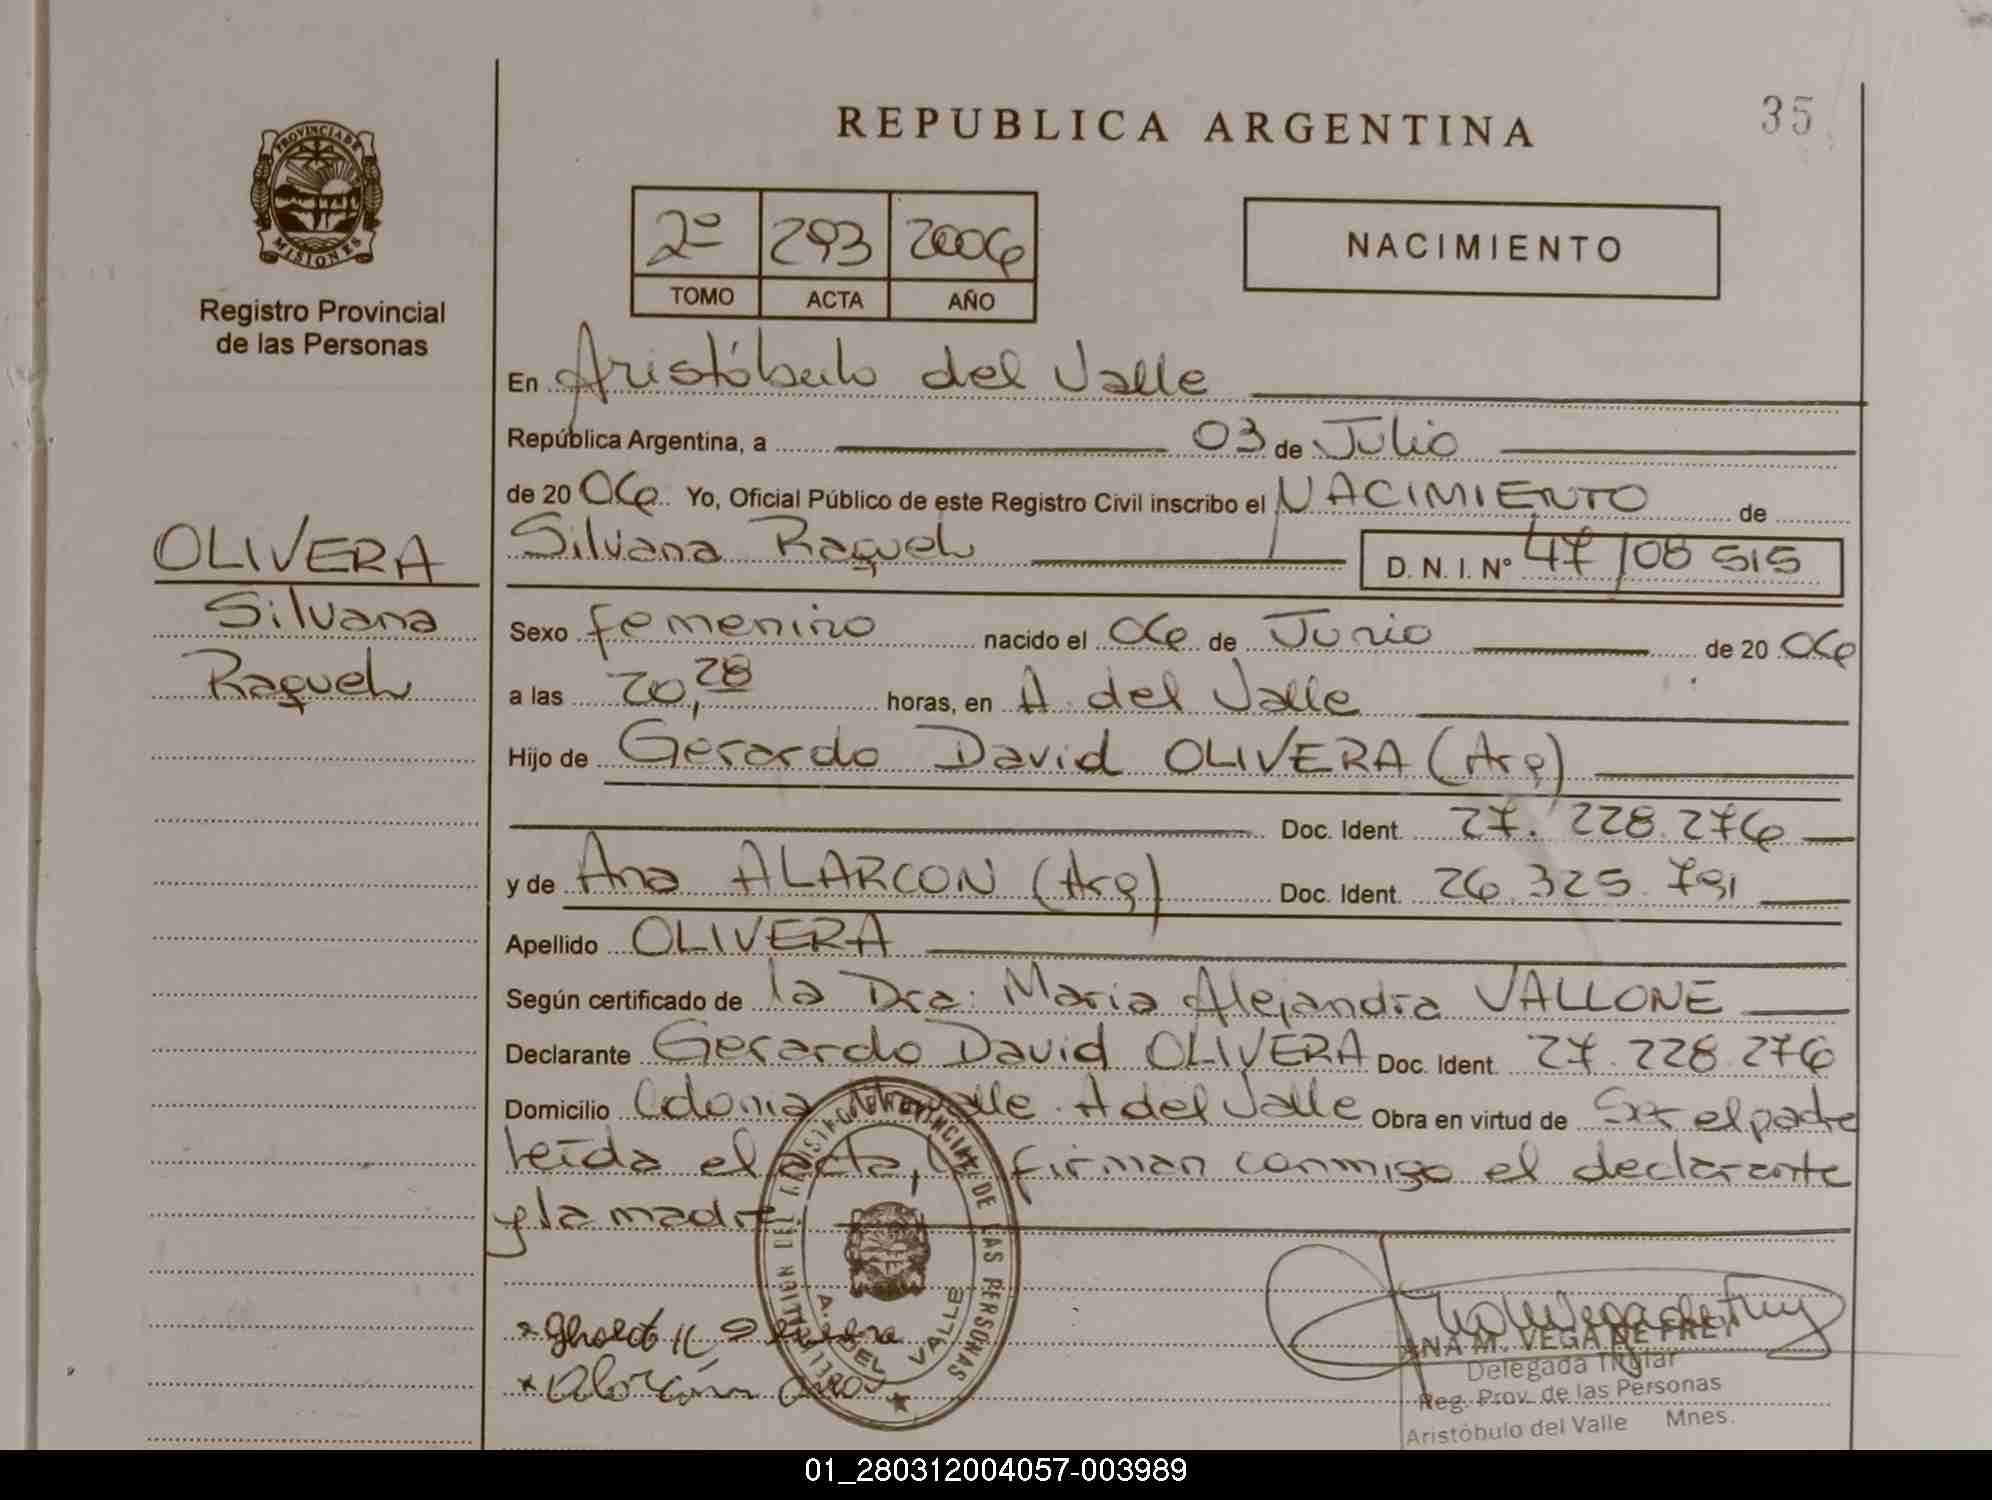 REPUBLICA ARGENTINA
35
PROVINCIA DE
MISIONES
Registro Provincial
de las Personas
2º 293 2006
TOMO ACTA AÑO
NACIMIENTO
En Aristóbulo del Valle
República Argentina, a 03 de Julio
de 20 06 Yo, Oficial Público de este Registro Civil inscribo el NACIMIENTO de
Silvana Raquel D. N. I. Nº 47 108 515
OLIVERA
Silvana
Raquel
Sexo femenino nacido el 06 de Junio de 20 06
a las 20,28 horas, en A. del Valle
Hijo de Gerardo David OLIVERA (Arg)
Doc. Ident. 27.228.276
y de Ana ALARCON (Arg) Doc. Ident. 26.325.791
Apellido OLIVERA
Según certificado de la Dra: Maria Alejandra VALLONE
Declarante Gerardo David OLIVERA Doc. Ident. 27.228.276
Domicilio Colonia A del Valle Obra en virtud de Ser el padre
leída el acta, firman conmigo el declarante
y la madre
PROVINCIAL DE LAS PERSONAS
A. DEL VALLE
ANA M. VEGA DE FREY
Delegada Titular
Reg. Prov. de las Personas
Aristóbulo del Valle Mnes.
01_280312004057-003989